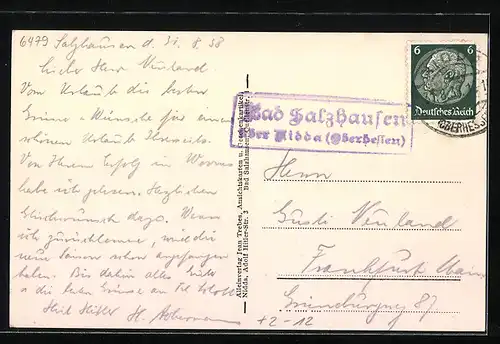 6479 Salzhausen d. 31. 8. 38
Lieber Herr Neuland.
Vom Urlaub die besten
Grüsse u. Wünsche für einen
schönen Urlaub Ihrerseits.
Von Ihrem Erfolg in Worms
habe ich gelesen. Herzlichen
Glückwunsch dazu. Wenn
ich zurückkomme, wird die
neue Saison schon angefangen
haben. Bis dahin alles Gute
u. die besten Grüsse an
Heil Hitler H. Ackermann
Alleinverlag Jean Trebes, Ansichtskarten u. Gedenkartikel
Nidda, Adolf Hitler-Str. 3
Bad Salzhausen
Bad Salzhausen
über Nidda (Oberhessen)
6 6
Deutsches Reich
(OBERHESS
Herrn
Gusti Neuland
Frankfurt Main
Grüneburgweg 87
+2-12